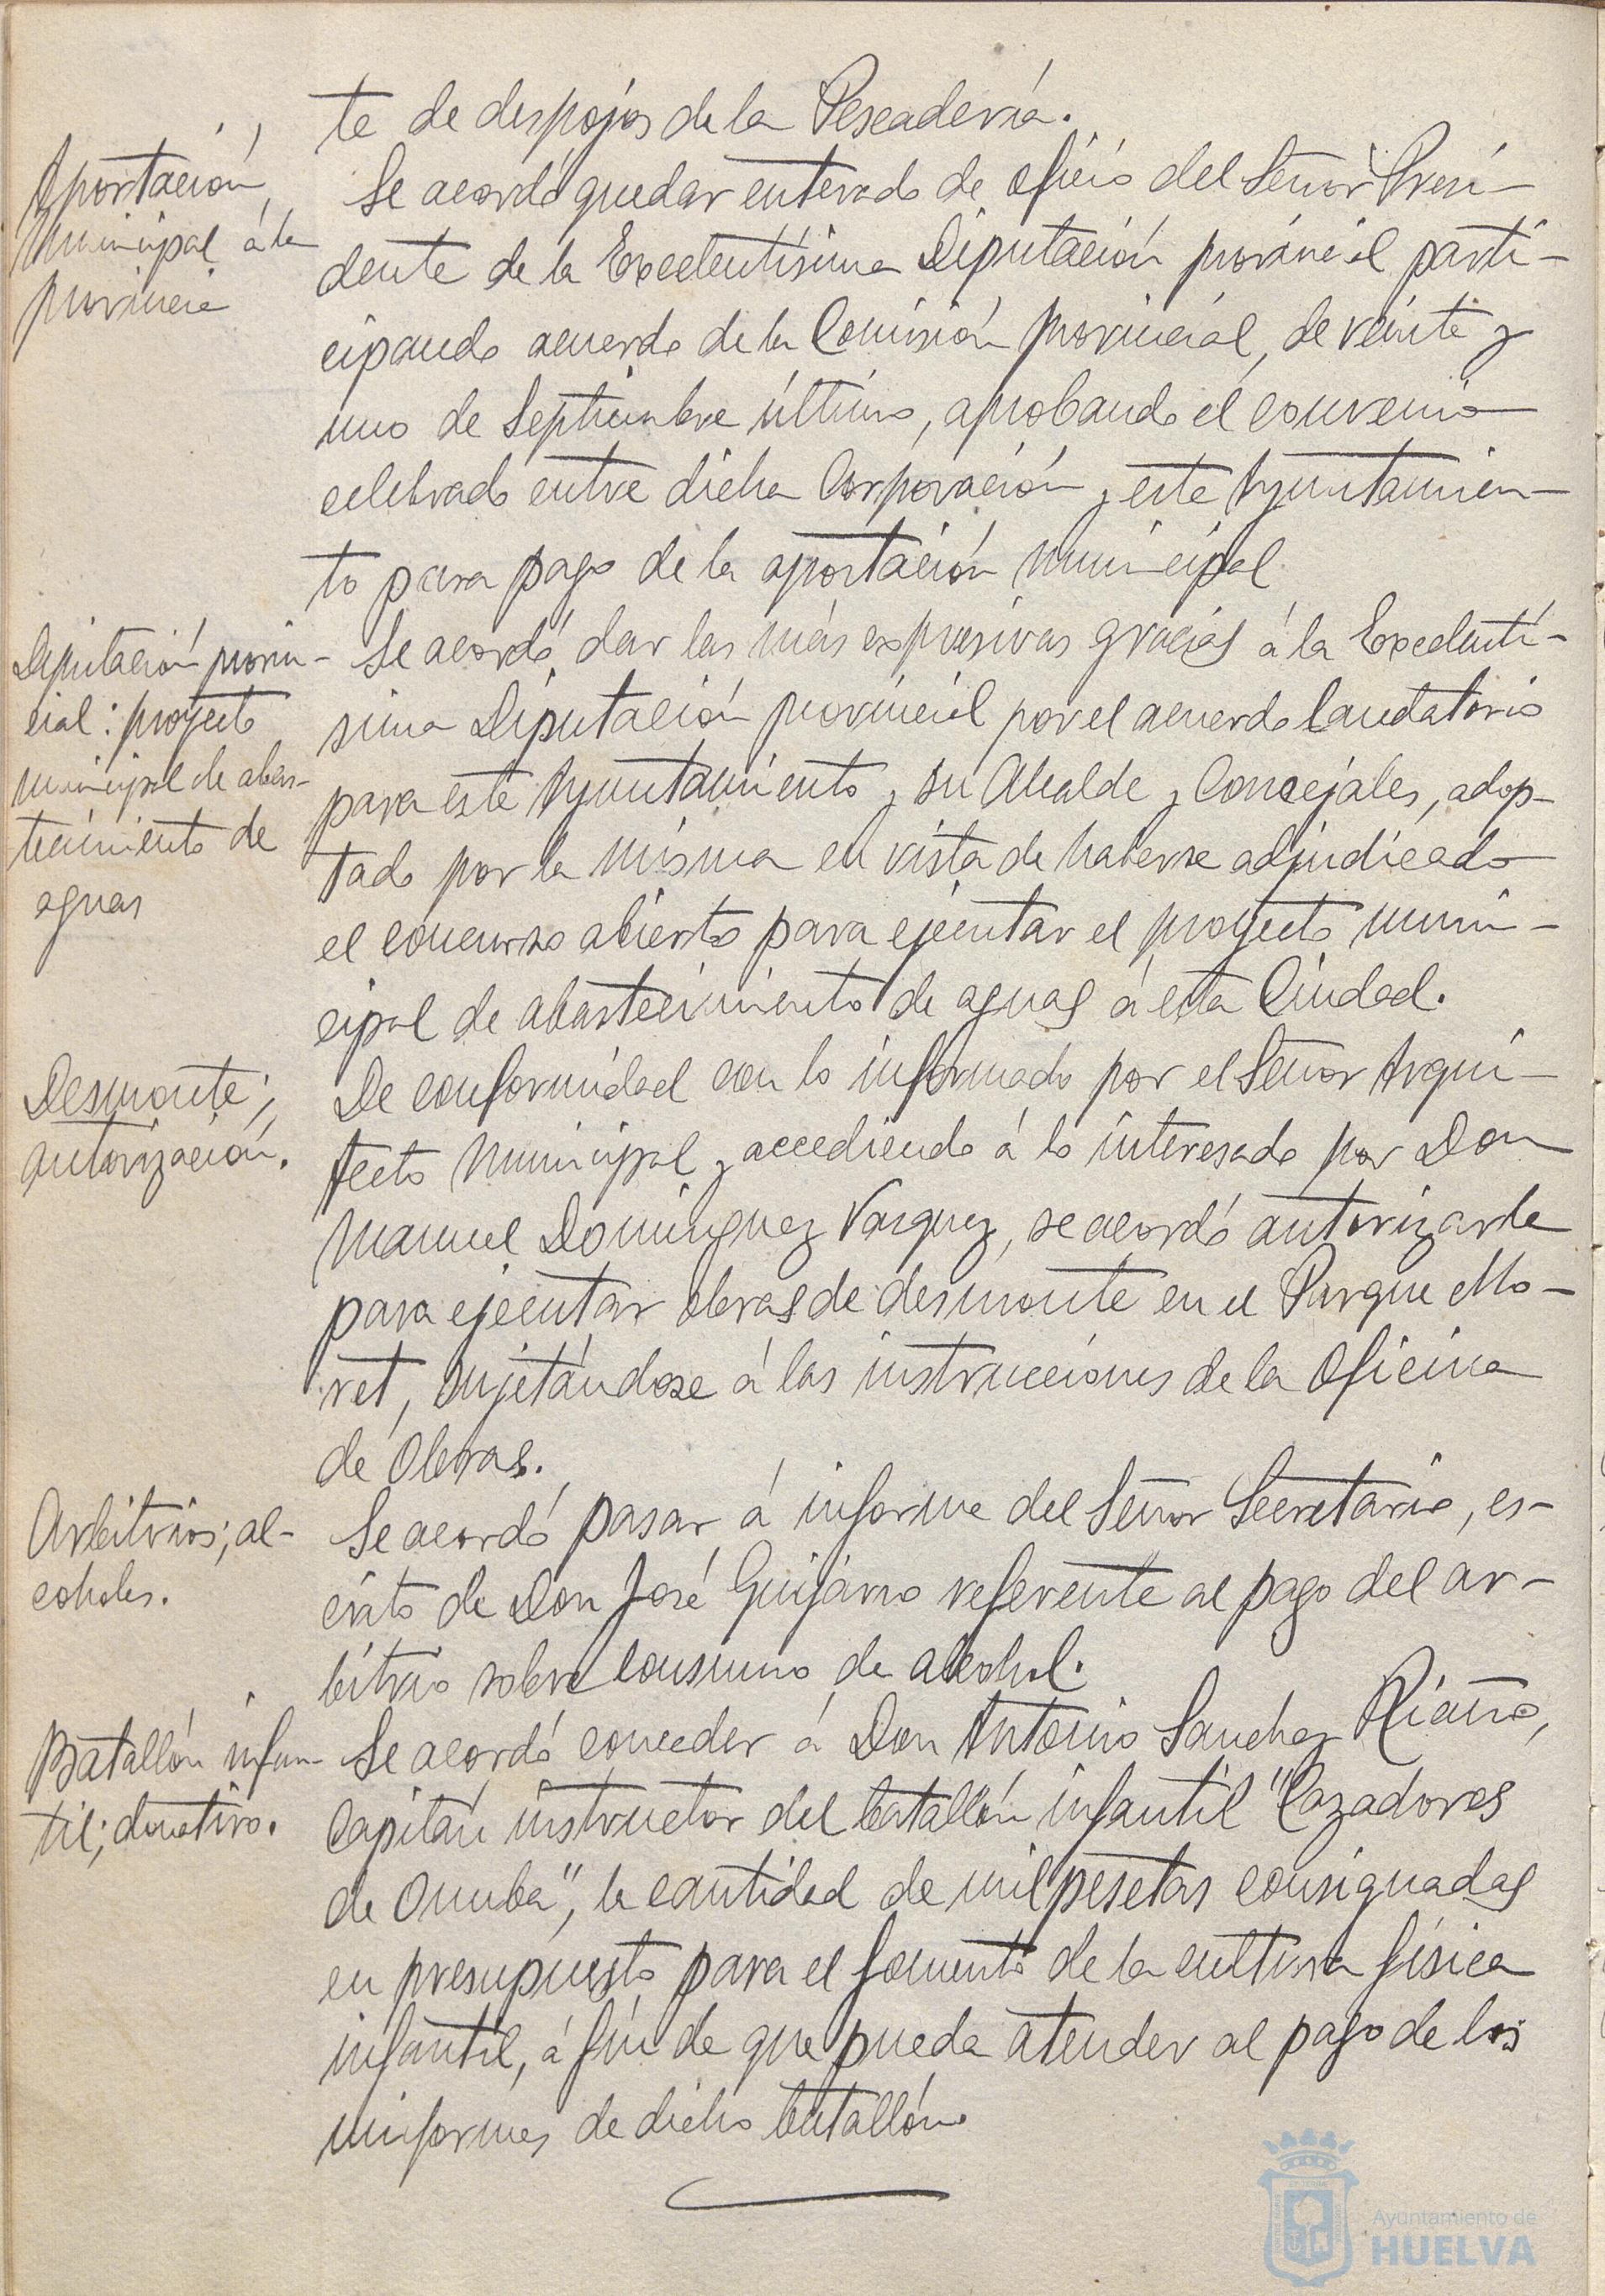 te de despojos de la Pescadería.
Aportación
municipal á la
provincia
Se acordó quedar enterado de oficio del Señor Presi-
dente de la Excelentísima Diputación provincial parti-
cipando acuerdo de la Comisión provincial, de veinte y
uno de Septiembre último, aprobando el convenio
celebrado entre dicha Corporación y este Ayuntamien-
to para pago de la aportación municipal
Diputación provin-
cial: proyecto
municipal de abas-
tecimiento de
aguas
Se acordó dar las más expresivas gracias á la Excelentí-
sima Diputación provincial por el acuerdo laudatorio
para este Ayuntamiento y su Alcalde y Concejales, adop-
tado por la misma en vista de haberse adjudicado
el concurso abierto para ejecutar el proyecto muni-
cipal de abastecimiento de aguas á esta Ciudad.
Desmonte;
autorización.
De conformidad con lo informado por el Señor Arqui-
tecto Municipal y accediendo á lo interesado por Don
Manuel Dominguez Vazquez, se acordó autorizarle
para ejecutar obras de desmonte en el Parque Mo-
ret, sujetándose á las instrucciones de la Oficina
de Obras.
Arbitrios; al-
coholes.
Se acordó pasar á informe del Señor Secretario, es-
crito de Don José Guijarro referente al pago del ar-
bitrio sobre consumo de alcohol.
Batallón infan-
til; donativo.
Se acordó conceder á Don Antonio Sanchez Riaño,
Capitán instructor del batallón infantil "Cazadores
de Onuba", la cantidad de mil pesetas consignadas
en presupuesto para el fomento de la cultura física
infantil, á fin de que pueda atender al pago de los
uniformes de dicho batallón.
Ayuntamiento de
HUELVA